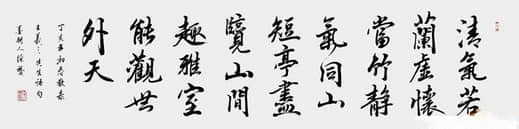 清氣若
蘭虛懷
當竹靜
氣同山
短亭盡
覽山間
趣雅室
能觀世
外天
丁亥年初春敬录
王羲之先生语句